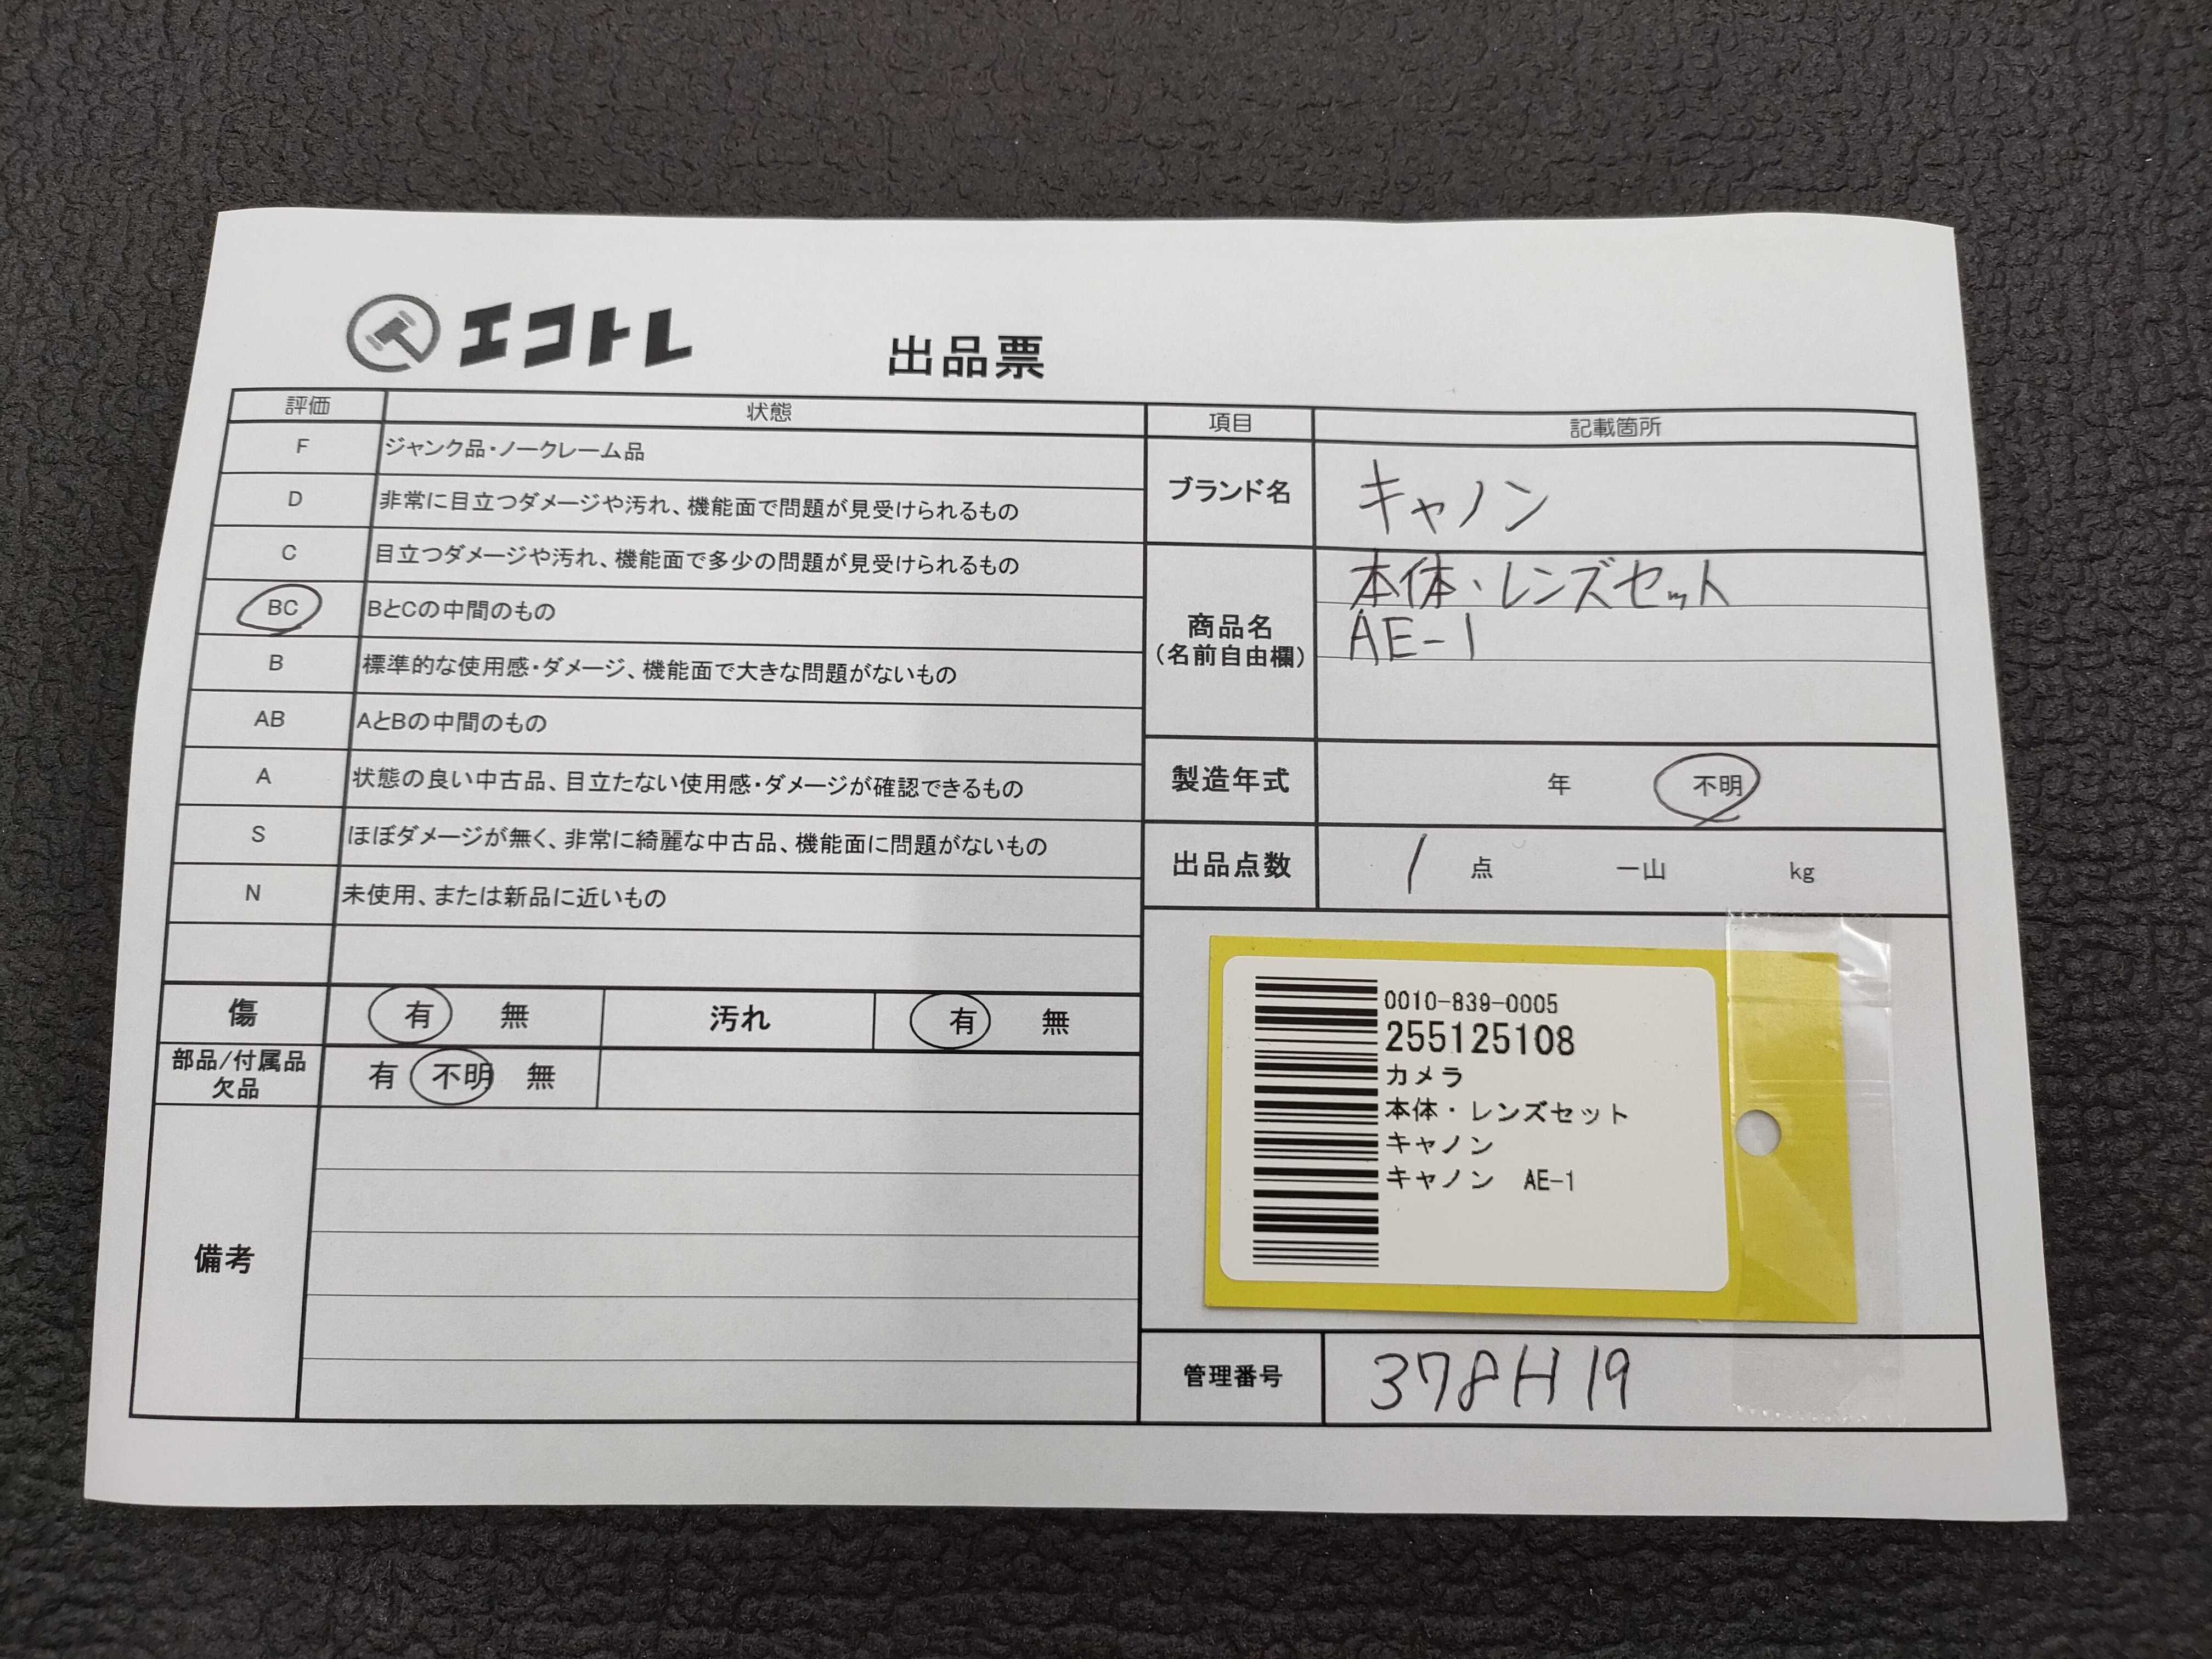 エコトレ
出品票
評価 状態
F ジャンク品・ノークレーム品
D 非常に目立つダメージや汚れ、機能面で問題が見受けられるもの
C 目立つダメージや汚れ、機能面で多少の問題が見受けられるもの
BC BとCの中間のもの
B 標準的な使用感・ダメージ、機能面で大きな問題がないもの
AB AとBの中間のもの
A 状態の良い中古品、目立たない使用感・ダメージが確認できるもの
S ほぼダメージが無く、非常に綺麗な中古品、機能面に問題がないもの
N 未使用、または新品に近いもの
傷 有 無 汚れ 有 無
部品/付属品
欠品 有 不明 無
備考
項目 記載箇所
ブランド名 キャノン
商品名
(名前自由欄)
本体・レンズセット
AE-1
製造年式 年 不明
出品点数 1 点 一山 kg
0010-839-0005
255125108
カメラ
本体・レンズセット
キャノン
キャノン AE-1
管理番号 378H19